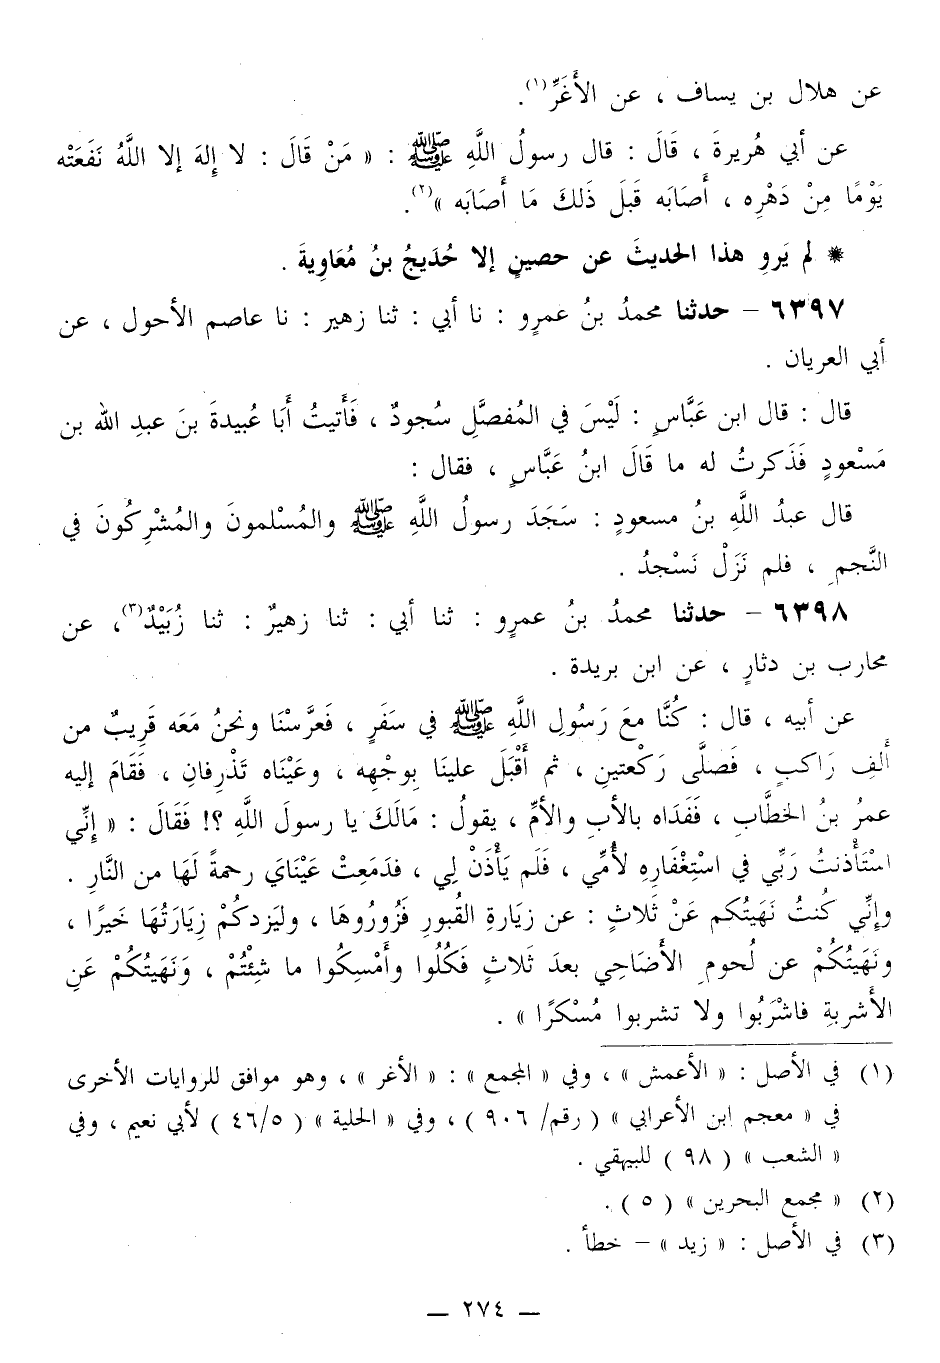 عن هلال بن يساف ، عن الأَغَرِّ(١).
عن أبي هُريرةَ ، قَالَ : قال رسولُ اللَّهِ ﷺ : « مَنْ قَالَ : لا إِلهَ إلا اللَّهُ نَفَعَتْه
يَوْمًا مِنْ دَهْرِه ، أَصَابَه قَبلَ ذَلكَ مَا أَصَابَه »(٢).
* لم يَروِ هذا الحديثَ عن حصينٍ إلا حُدَيجُ بنُ مُعَاويةَ .
٦٣٩٧ – حدثنا محمدُ بنُ عمرٍو : نا أبي : ثنا زهير : نا عاصم الأحول ، عن
أبي العريان .
قال : قال ابن عَبَّاسٍ : لَيْسَ في المُفصَّلِ سُجودٌ ، فَأَتيتُ أَبَا عُبيدةَ بنَ عبدِ الله بن
مَسْعودٍ فَذَكرتُ له ما قَالَ ابنُ عَبَّاسٍ ، فقال :
قال عبدُ اللَّهِ بنُ مسعودٍ : سَجَدَ رسولُ اللَّهِ ﷺ والمُسْلمونَ والمُشْرِكُونَ في
النَّجمِ ، فلم نَزَلْ نَسْجدُ .
٦٣٩٨ – حدثنا محمدُ بنُ عمرٍو : ثنا أبي : ثنا زهيرٌ : ثنا زُبَيْدٌ(٣)، عن
محارب بن دثارٍ ، عن ابن بريدة .
عن أبيه ، قال : كُنَّا معَ رَسُولِ اللَّهِ ﷺ في سَفَرٍ ، فَعرَّسْنَا ونحنُ مَعَه قَرِيبٌ من
أَلفِ رَاكبٍ ، فَصلَّى رَكْعتينِ ، ثم أَقْبَلَ علينَا بِوجْهِه ، وعَيْنَاه تَذْرِفانِ ، فَقَامَ إليه
عمرُ بنُ الخطَّابِ ، فَفَدَاه بالأبِ والأمِّ ، يقولُ : مَالَكَ يا رسولَ اللَّهِ ؟! فَقَالَ : « إِنِّي
اسْتَأْذنتُ رَبِّي في اسْتِغْفَارِه لأُمِّي ، فَلَم يَأْذَنْ لِي ، فدَمَعِتْ عَيْنَايَ رحمةً لَهَا من النَّارِ .
وإِنِّي كنتُ نَهَيتُكم عَنْ ثَلاثٍ : عن زيَارةِ القُبورِ فَزُورُوهَا ، وليَزدكمْ زِيَارَتُهَا خَيرًا ،
ونَهَيتُكُمْ عن لُحومِ الأضَاحِي بعدَ ثَلاثٍ فَكُلُوا وأَمْسِكُوا ما شئِتُمْ ، وَنَهَيتُكُمْ عَنِ
الأَشربةِ فاشْرَبُوا ولا تشربوا مُسْكرًا » .
(١) في الأصل : « الأعمش » ، وفي « المجمع » : « الأغر » ، وهو موافق للروايات الأخرى
في « معجم ابن الأعرابي » ( رقم/ ٩٠٦ ) ، وفي « الحلية » ( ٤٦/٥ ) لأبي نعيم ، وفي
« الشعب » ( ٩٨ ) للبيهقي .
(٢) « مجمع البحرين » ( ٥ ) .
(٣) في الأصل : « زيد » – خطأ .
— ٢٧٤ —